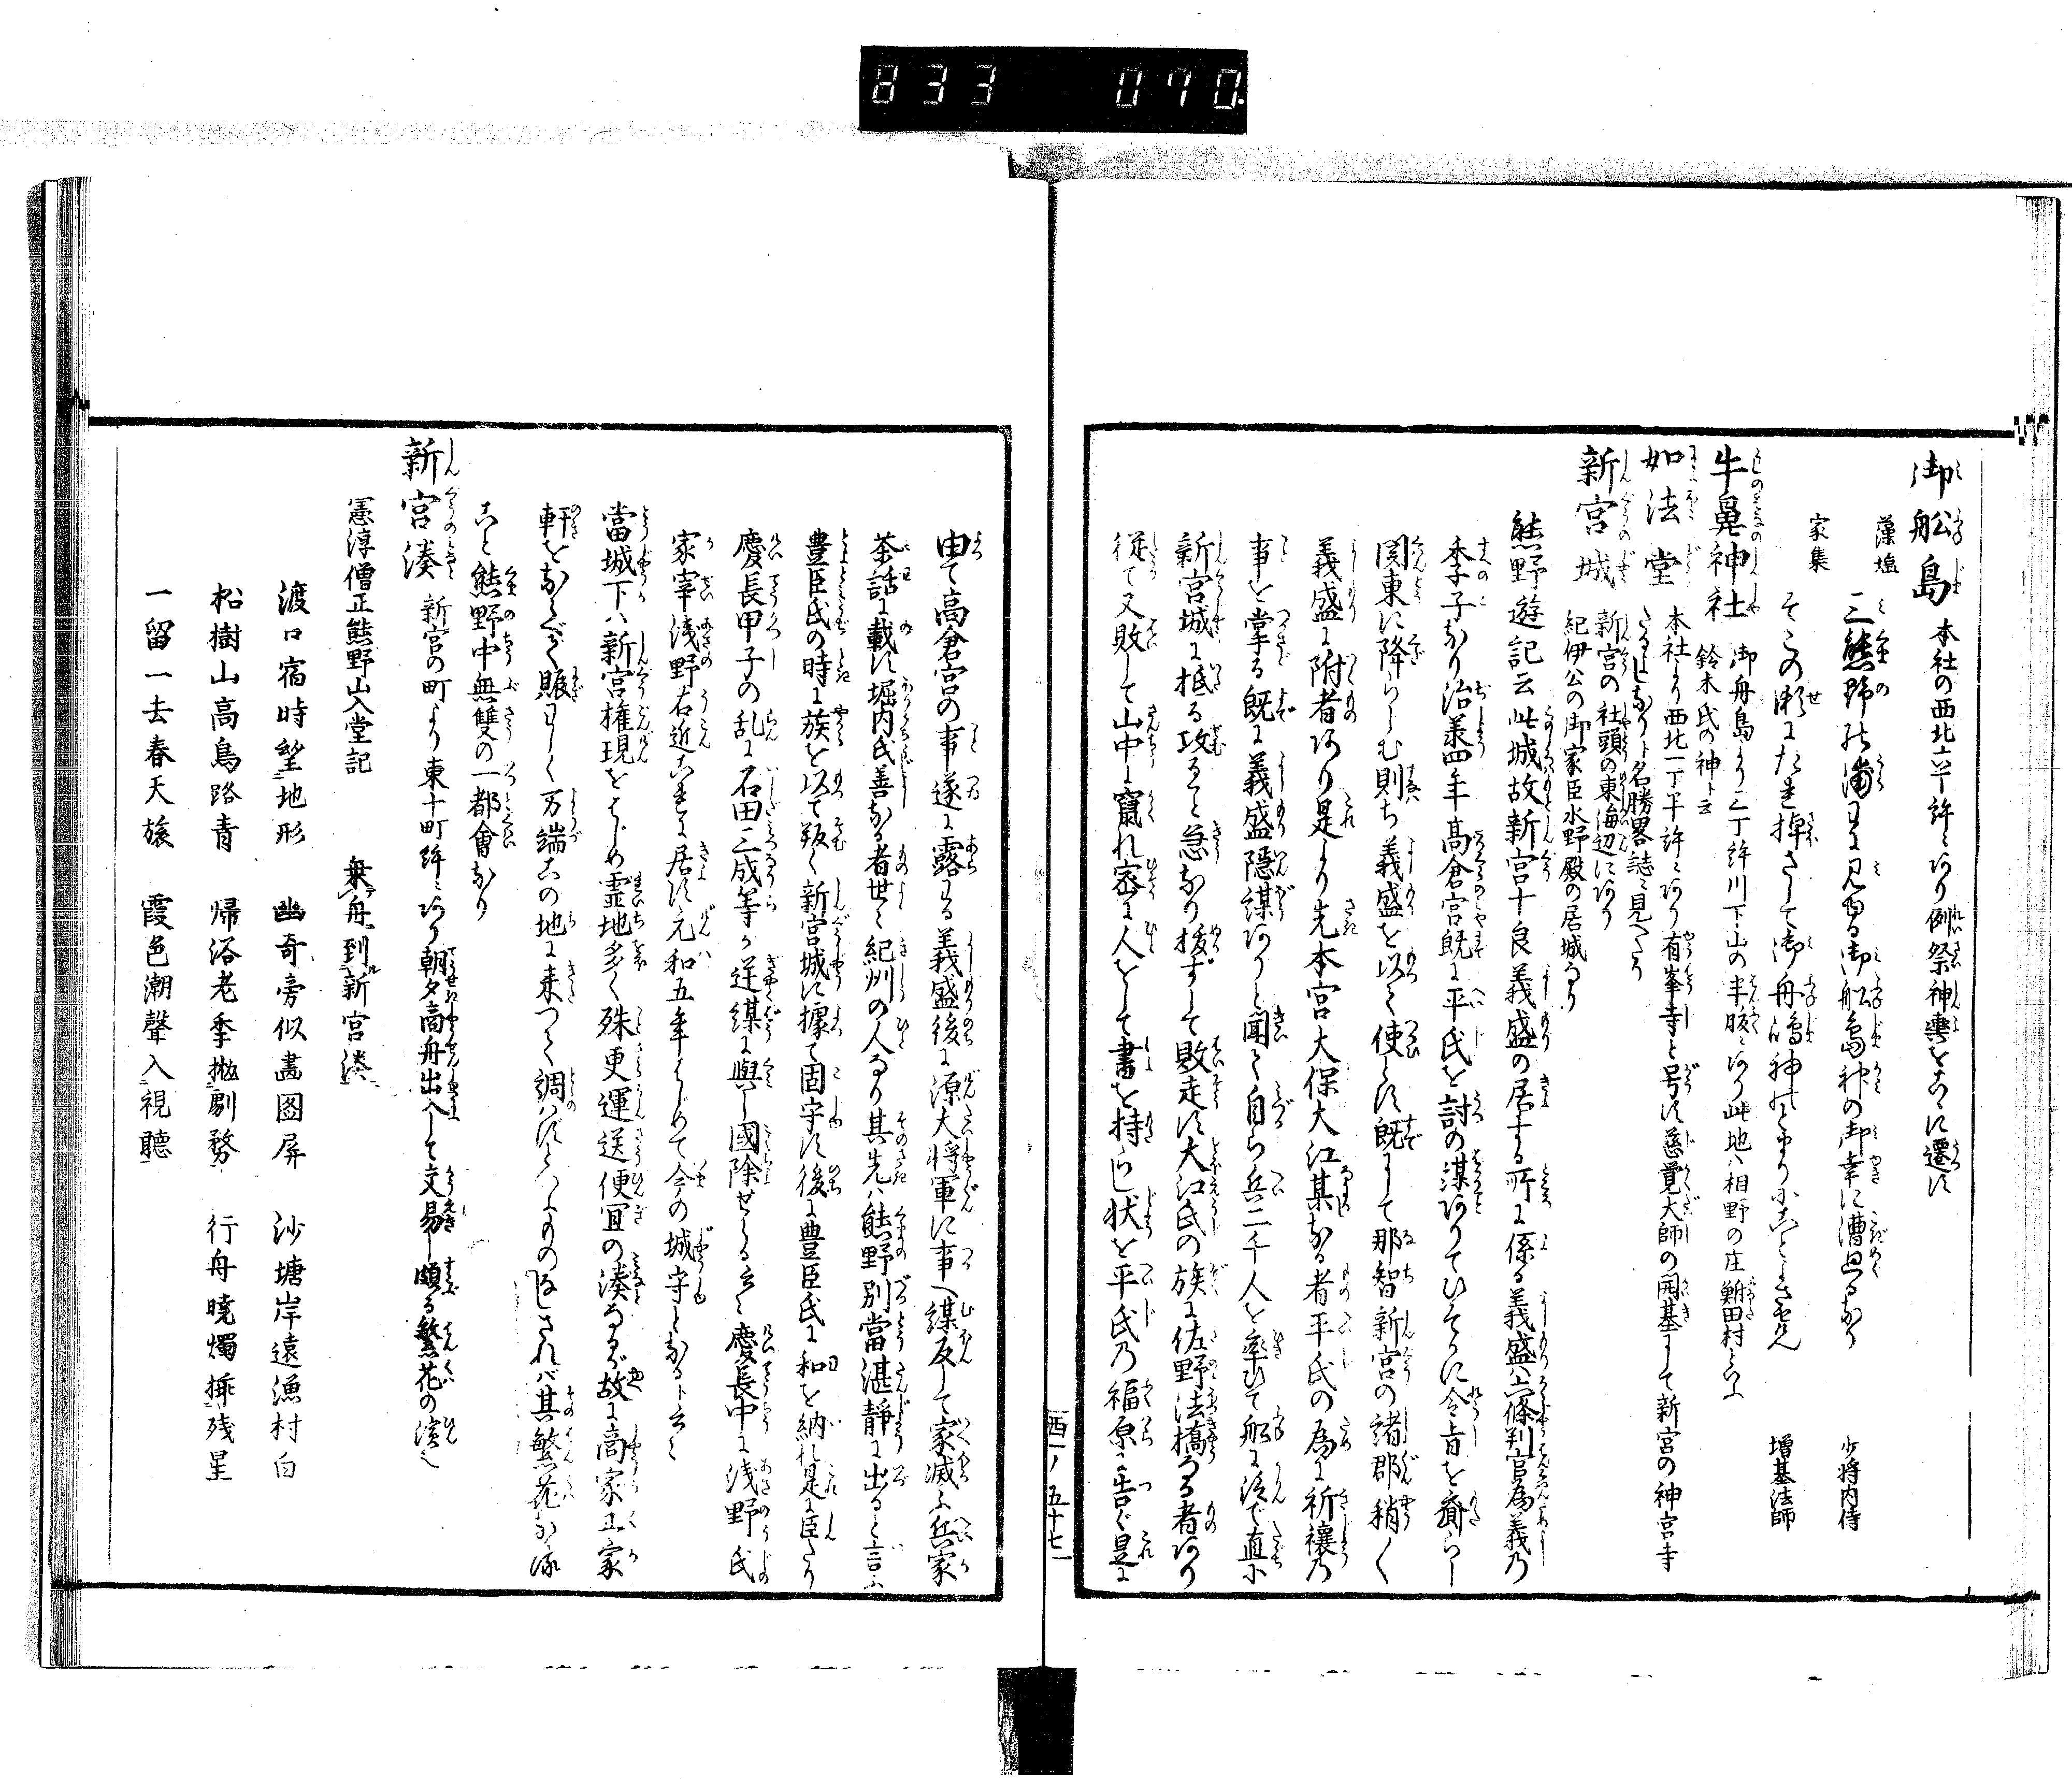 833 070.
御舩島 本社の西北六丁許にあり例祭神輿をこゝに遷す
藻塩 三熊野の浦わに見ゆる御舩島神の御幸に漕回るなり 少将内侍
家集 そこの瀬にたれ棹さして御舟島神のとまりに 増基法師
牛鼻神社 御舟島より二丁許川下山の半腹にあり此地ハ相野の庄鮒田村といふ
鈴木氏の神ト云
如法堂 本社より西北一丁半許にあり有峯寺と号す慈覚大師の開基にして新宮の神宮寺
たるよしなりト名勝畧誌に見へたり
新宮城 新宮の社頭の東海辺にあり
紀伊公の御家臣水野殿の居城なり
熊野遊記云此城故新宮十良義盛の居する所に係る義盛ハ六條判官為義乃
季子なり治承四年高倉宮既に平氏を討の謀ありてひそかに令旨を齎らし
関東に降らしむ則ち義盛を以て使とす既にして那智新宮の諸郡稍く
義盛に附者あり是より先本宮大保大江某なる者平氏の為に祈禳乃
事を掌る既に義盛隠謀ありと聞て自ら兵二千人を率ひて舩に泛で直に
新宮城に抵る攻ると急なり抜ずして敗走す大江氏の族に佐野法橋なる者あり
従て又敗して山中に竄れ密に人をして書を持らし状を平氏乃福原に告ぐ是に
西一ノ五十七
由て高倉宮の事遂に露る義盛後に源大将軍に事へ謀反して家滅ふ兵家
茶話に載す堀内氏善なる者世々紀州の人なり其先ハ熊野別當湛静に出ると言ふ
豊臣氏の時に族を以て叛く新宮城に據て固守す後に豊臣氏に和を納れ是に臣たり
慶長甲子の乱に石田三成等が逆謀に與し國除せらる云々慶長中に浅野氏
家宰浅野右近こゝに居す元和五年はじめて今の城守となるト云々
當城下ハ新宮権現をはじめ霊地多く殊更運送便宜の湊なるが故に高家工家
軒をならべて賑わしく万端この地に来つて調ハずといふものなしされバ其繁花なる
こと熊野中無雙の一都會なり
新宮湊 新宮の町より東十町許にあり朝夕商舟出入して文易し頗る繁花の濱也
憲淳僧正熊野山入堂記 乗舟到新宮湊
渡口宿時望地形 幽奇旁似畵図屏 沙塘岸遠漁村白
松樹山高鳥路青 帰浴老季抛劇務 行舟曉燭挿残星
一留一去春天旅 霞色潮聲入視聽